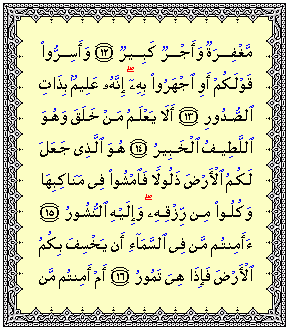 مَّغْفِرَةٌ وَأَجْرٌ كَبِيرٌ ۝١٢ وَأَسِرُّوا۟
قَوْلَكُمْ أَوِ ٱجْهَرُوا۟ بِهِۦٓ ۖ إِنَّهُۥ عَلِيمٌۢ بِذَاتِ
ٱلصُّدُورِ ۝١٣ أَلَا يَعْلَمُ مَنْ خَلَقَ وَهُوَ
ٱللَّطِيفُ ٱلْخَبِيرُ ۝١٤ هُوَ ٱلَّذِى جَعَلَ
لَكُمُ ٱلْأَرْضَ ذَلُولًا فَٱمْشُوا۟ فِى مَنَاكِبِهَا
وَكُلُوا۟ مِن رِّزْقِهِۦ ۖ وَإِلَيْهِ ٱلنُّشُورُ ۝١٥
ءَأَمِنتُم مَّن فِى ٱلسَّمَآءِ أَن يَخْسِفَ بِكُمُ
ٱلْأَرْضَ فَإِذَا هِىَ تَمُورُ ۝١٦ أَمْ أَمِنتُم مَّن